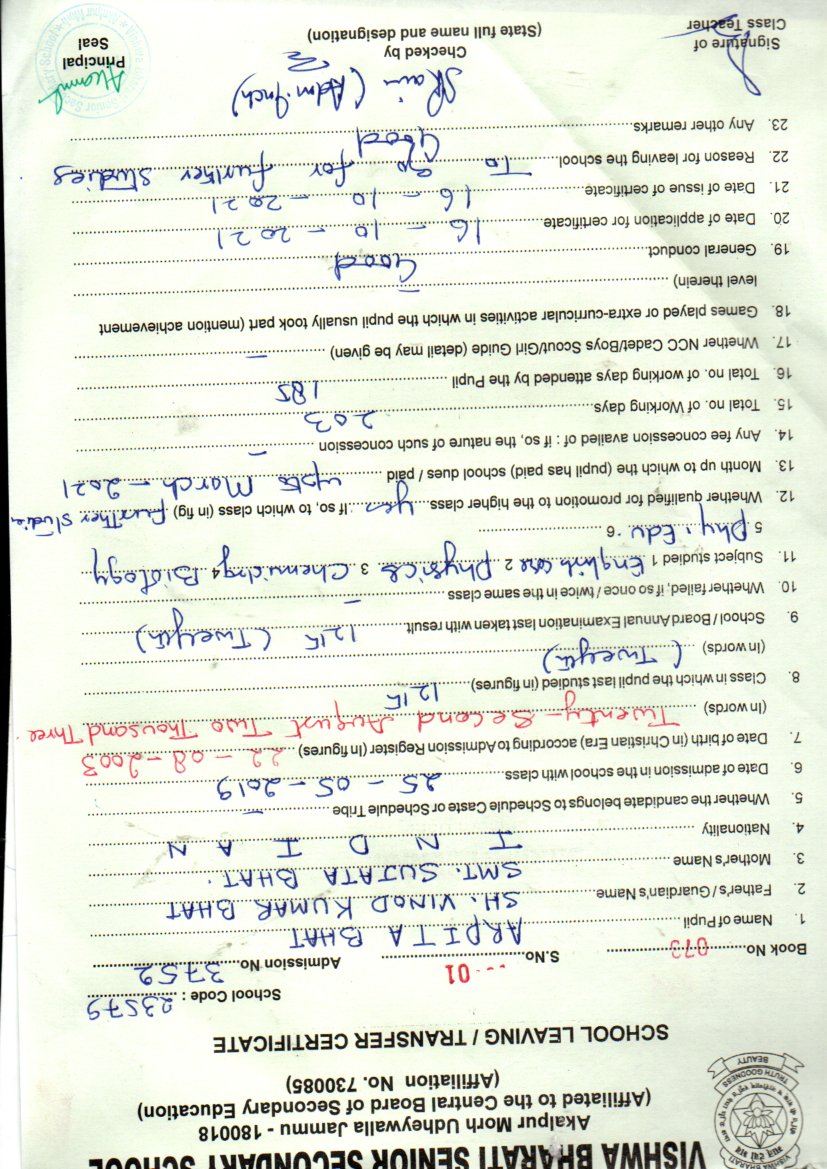 VISHWA BHARATI SENIOR SECONDARY SCHOOL
Akalpur Morh Udheywalla Jammu - 180018
(Affiliated to the Central Board of Secondary Education)
(Affiliation No. 730085)
TRUTH GOODNESS
BEAUTY
SCHOOL LEAVING / TRANSFER CERTIFICATE
School Code : 23579
Book No. 073 S.No. 01 Admission No. 3752
1. Name of Pupil ARPITA BHAT
2. Father's / Guardian's Name SH. VINOD KUMAR BHAT
3. Mother's Name SMT. SUJATA BHAT.
4. Nationality I N D I A N
5. Whether the candidate belongs to Schedule Caste or Schedule Tribe –
6. Date of admission in the school with class 25 - 05 - 2019
7. Date of birth (in Christian Era) according to Admission Register (In figures) 22 - 08 - 2003
(In words) Twenty-Second August Two Thousand Three.
8. Class in which the pupil last studied (in figures) 12th
(In words) (Twelfth)
9. School / Board Annual Examination last taken with result 12th (Twelfth)
10. Whether failed, if so once / twice in the same class –
11. Subject studied 1 English core 2 Physics 3 Chemistry 4 Biology
5 Phy. Edu. 6
12. Whether qualified for promotion to the higher class yes If so, to which class (in fig) further studies
13. Month up to which the (pupil has paid) school dues / paid upto March - 2021
14. Any fee concession availed of : if so, the nature of such concession –
15. Total no. of Working days 203
16. Total no. of working days attended by the Pupil 185
17. Whether NCC Cadet/Boys Scout/Girl Guide (detail may be given) –
18. Games played or extra-curricular activities in which the pupil usually took part (mention achievement
level therein) –
19. General conduct Good
20. Date of application for certificate 16 - 10 - 2021
21. Date of issue of certificate 16 - 10 - 2021
22. Reason for leaving the school To go for further studies
23. Any other remarks Good
(Adm. Inch)
Signature of
Class Teacher
Checked by
(State full name and designation)
Principal
Seal